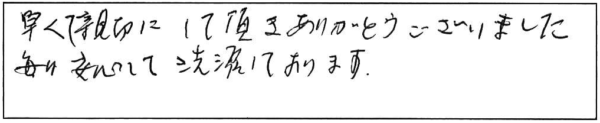 早くて親切にして頂きありがとうございました
毎日安心して洗濯しております.